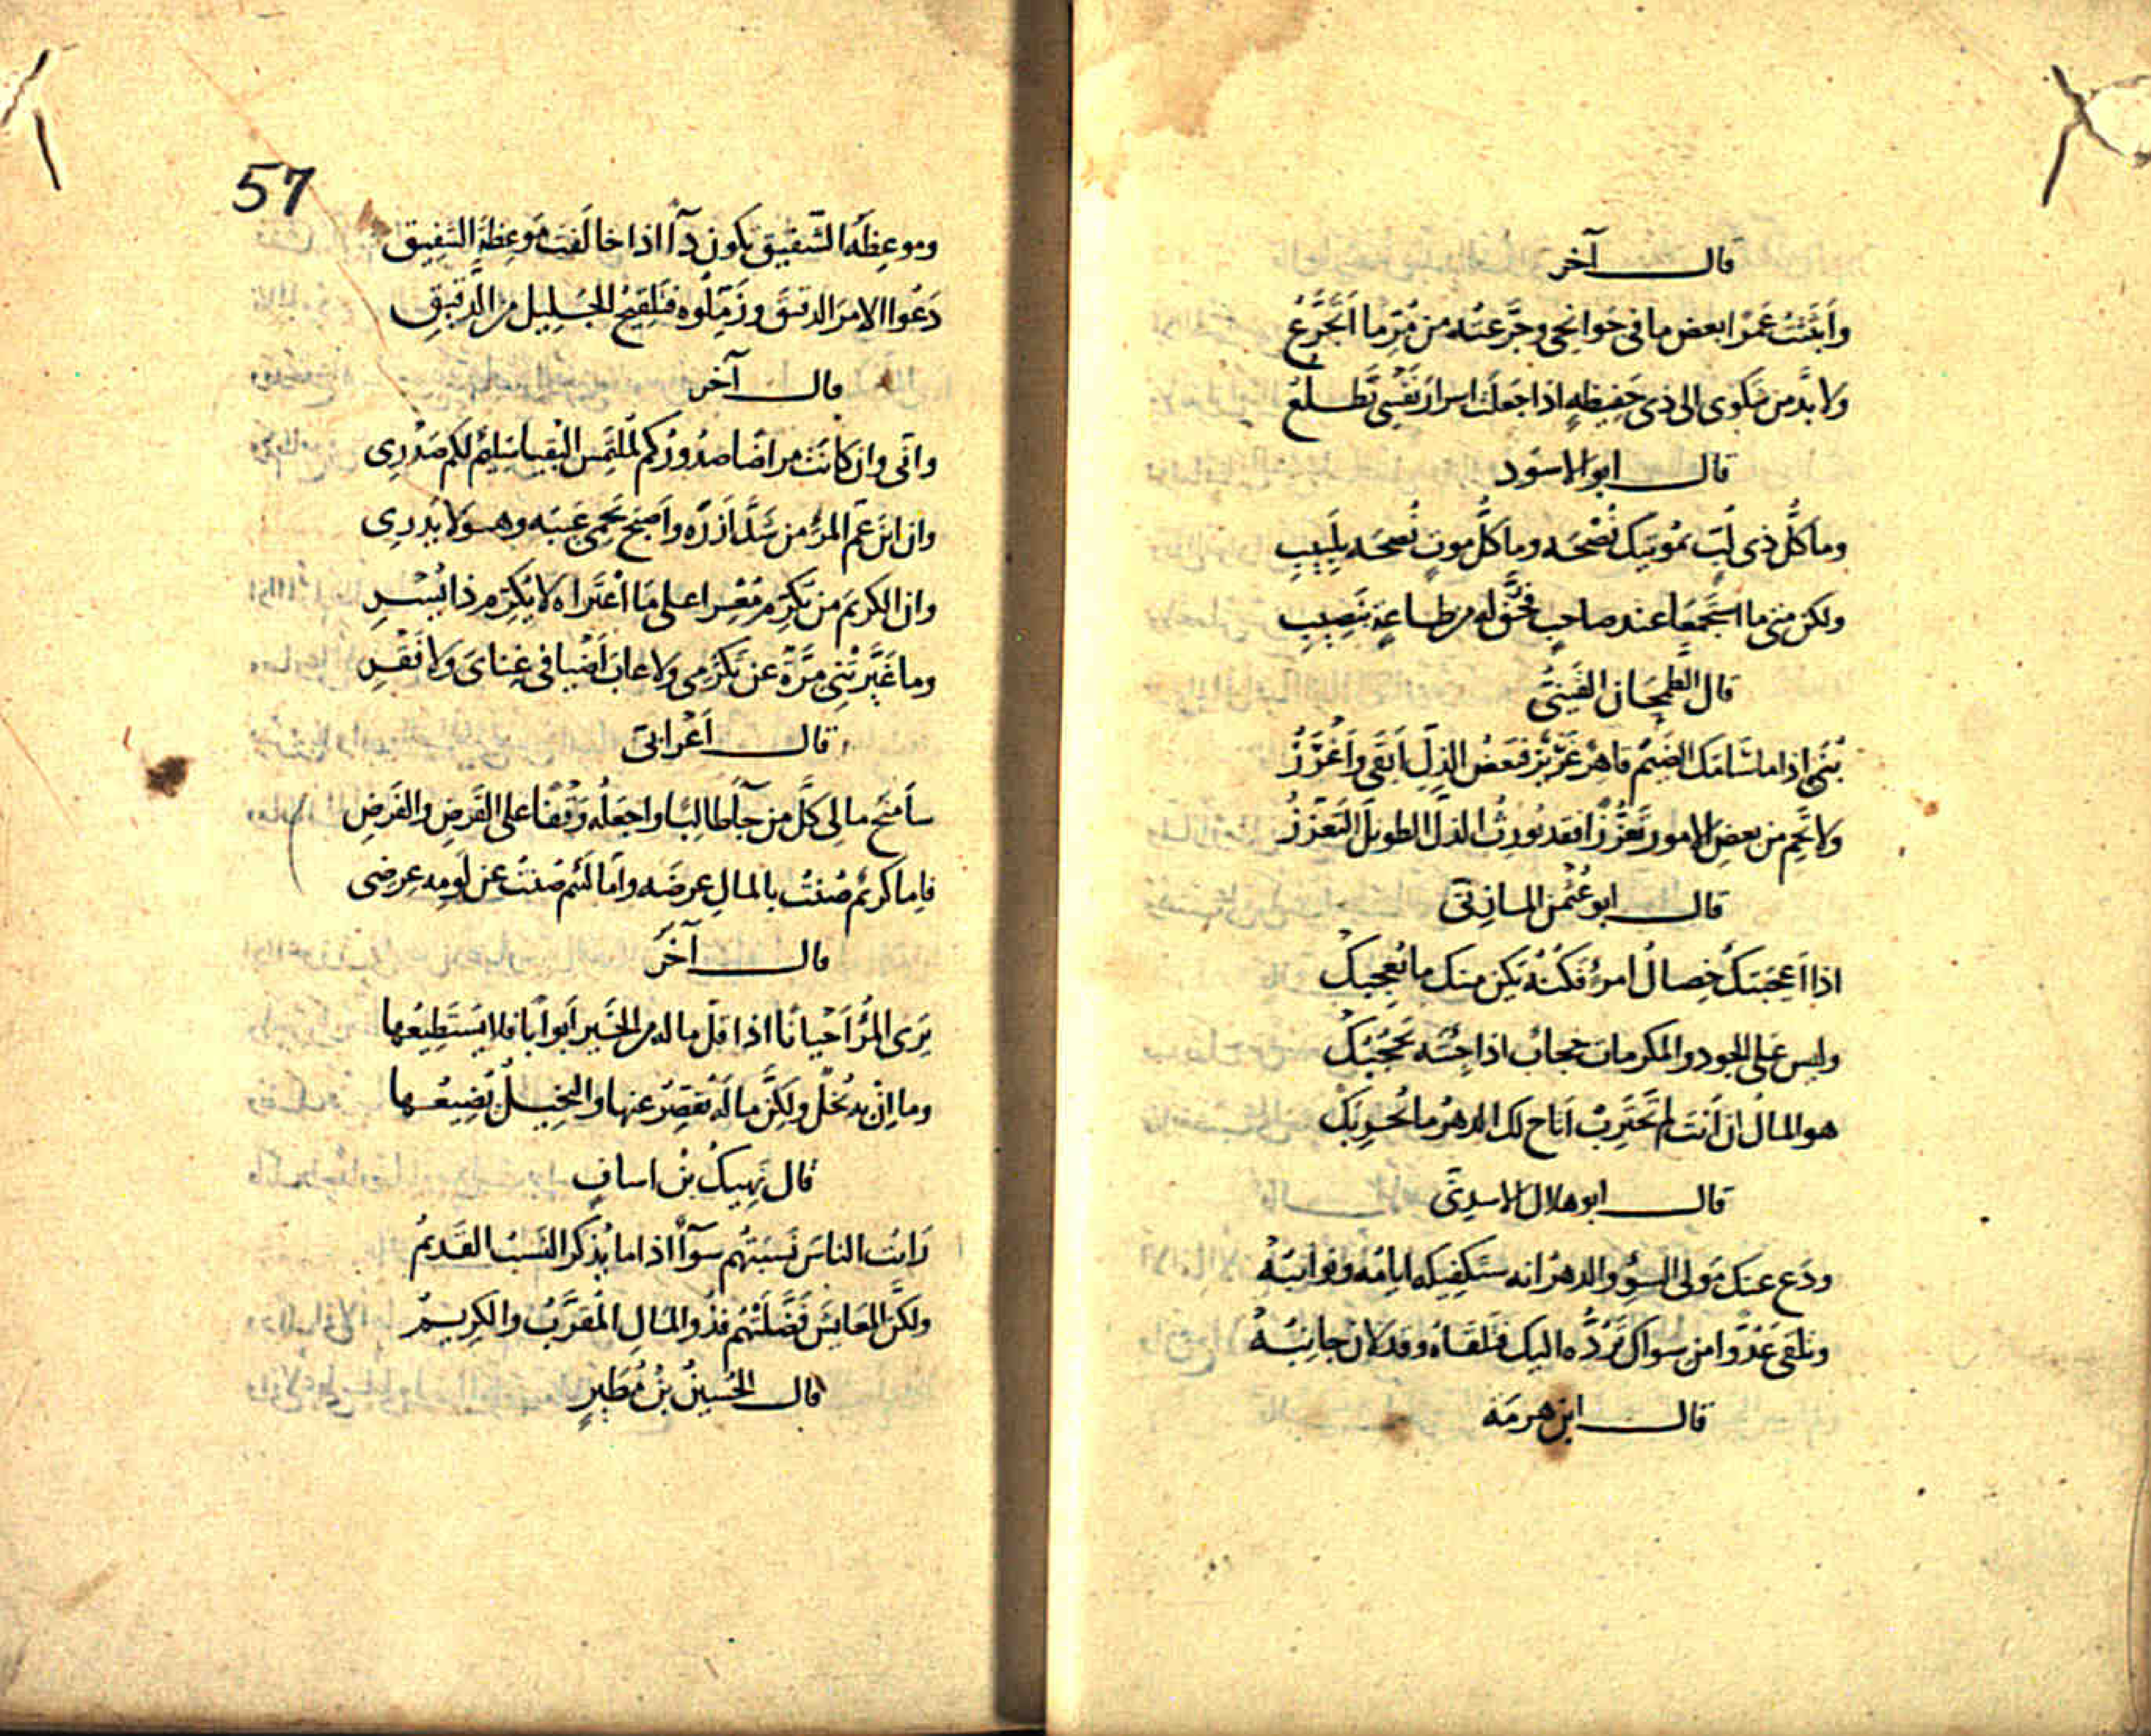 قال آخر
وأبثثت عمرا بعض ما في جوانحي وجرعته من مر ما أتجرع
ولا بد من شكوى الى ذي حفيظة اذا جعلت اسرار نفسي تطلع
قال ابو الاسود
وما كل ذي لب بموتيك نصحه وما كل موت نصحه بلبيب
ولكن متى ما استجمعا عند صاحب فحق له من طاعة بنصيب
قال الطمحان القيني
بني اذا ما سامك الضيم قاهر عزيز فبعض الذل أبقى وأعزز
ولا تحم من بعض الامور تعززا فقد يورث الذل الطويل التعزز
قال ابو عثمن المازني
اذا أعجبتك خصال امرئ فكنه تكن منك ما يعجبك
وليس على الجود والمكرمات حجاب اذا جئته يحجبك
هو المال ان أنت لم تحترب أتاح لك الدهر ما يحربك
قال ابو هلال الاسدي
ودع عنك مولى السوء والدهر انه ستكفيكه ايامه ونوائبه
وتلقى عدوا من سواك يرده اليك فتلقاه وقد لان جانبه
قال ابن هرمه
57
وموعظة الشفيق يكون دآا اذا خالفت موعظة الشفيق
دعوا الامر الدقيق وزملوه فتلقيح الجليل من الدقيق
قال آخر
واني وان كانت مراضا صدوركم لملتمس البقيا سليم لكم صدري
وان ابن عم المرء من شد ازره وأصبح يحمي غيبه وهو لا يدري
وان الكريم من تكرم معسرا على ما اعتراه لا تكرم ذا يسر
وما غيرتني مرة عن تكرمي ولا عاب أضيافي غناي ولا فقر
قال أعرابي
سأمنح مالي كل من جآ طالبا واجعله وقفا على القرض والفرض
فاما كريم صنت بالمال عرضه واما لئيم صنت عن لومه عرضي
قال آخر
يرى المرء أحيانا اذا قل ماله من الخير أبوابا فلا يستطيعها
وما ان به بخل ولكن ماله يقصر عنها والبخيل يضيعها
قال نهيك بن اساف
رأيت الناس نسبتهم سوآا اذا ما يذكر النسب القديم
ولكن المعايش فضلتهم فذو المال المقرب والكريم
قال الحسين بن مطير